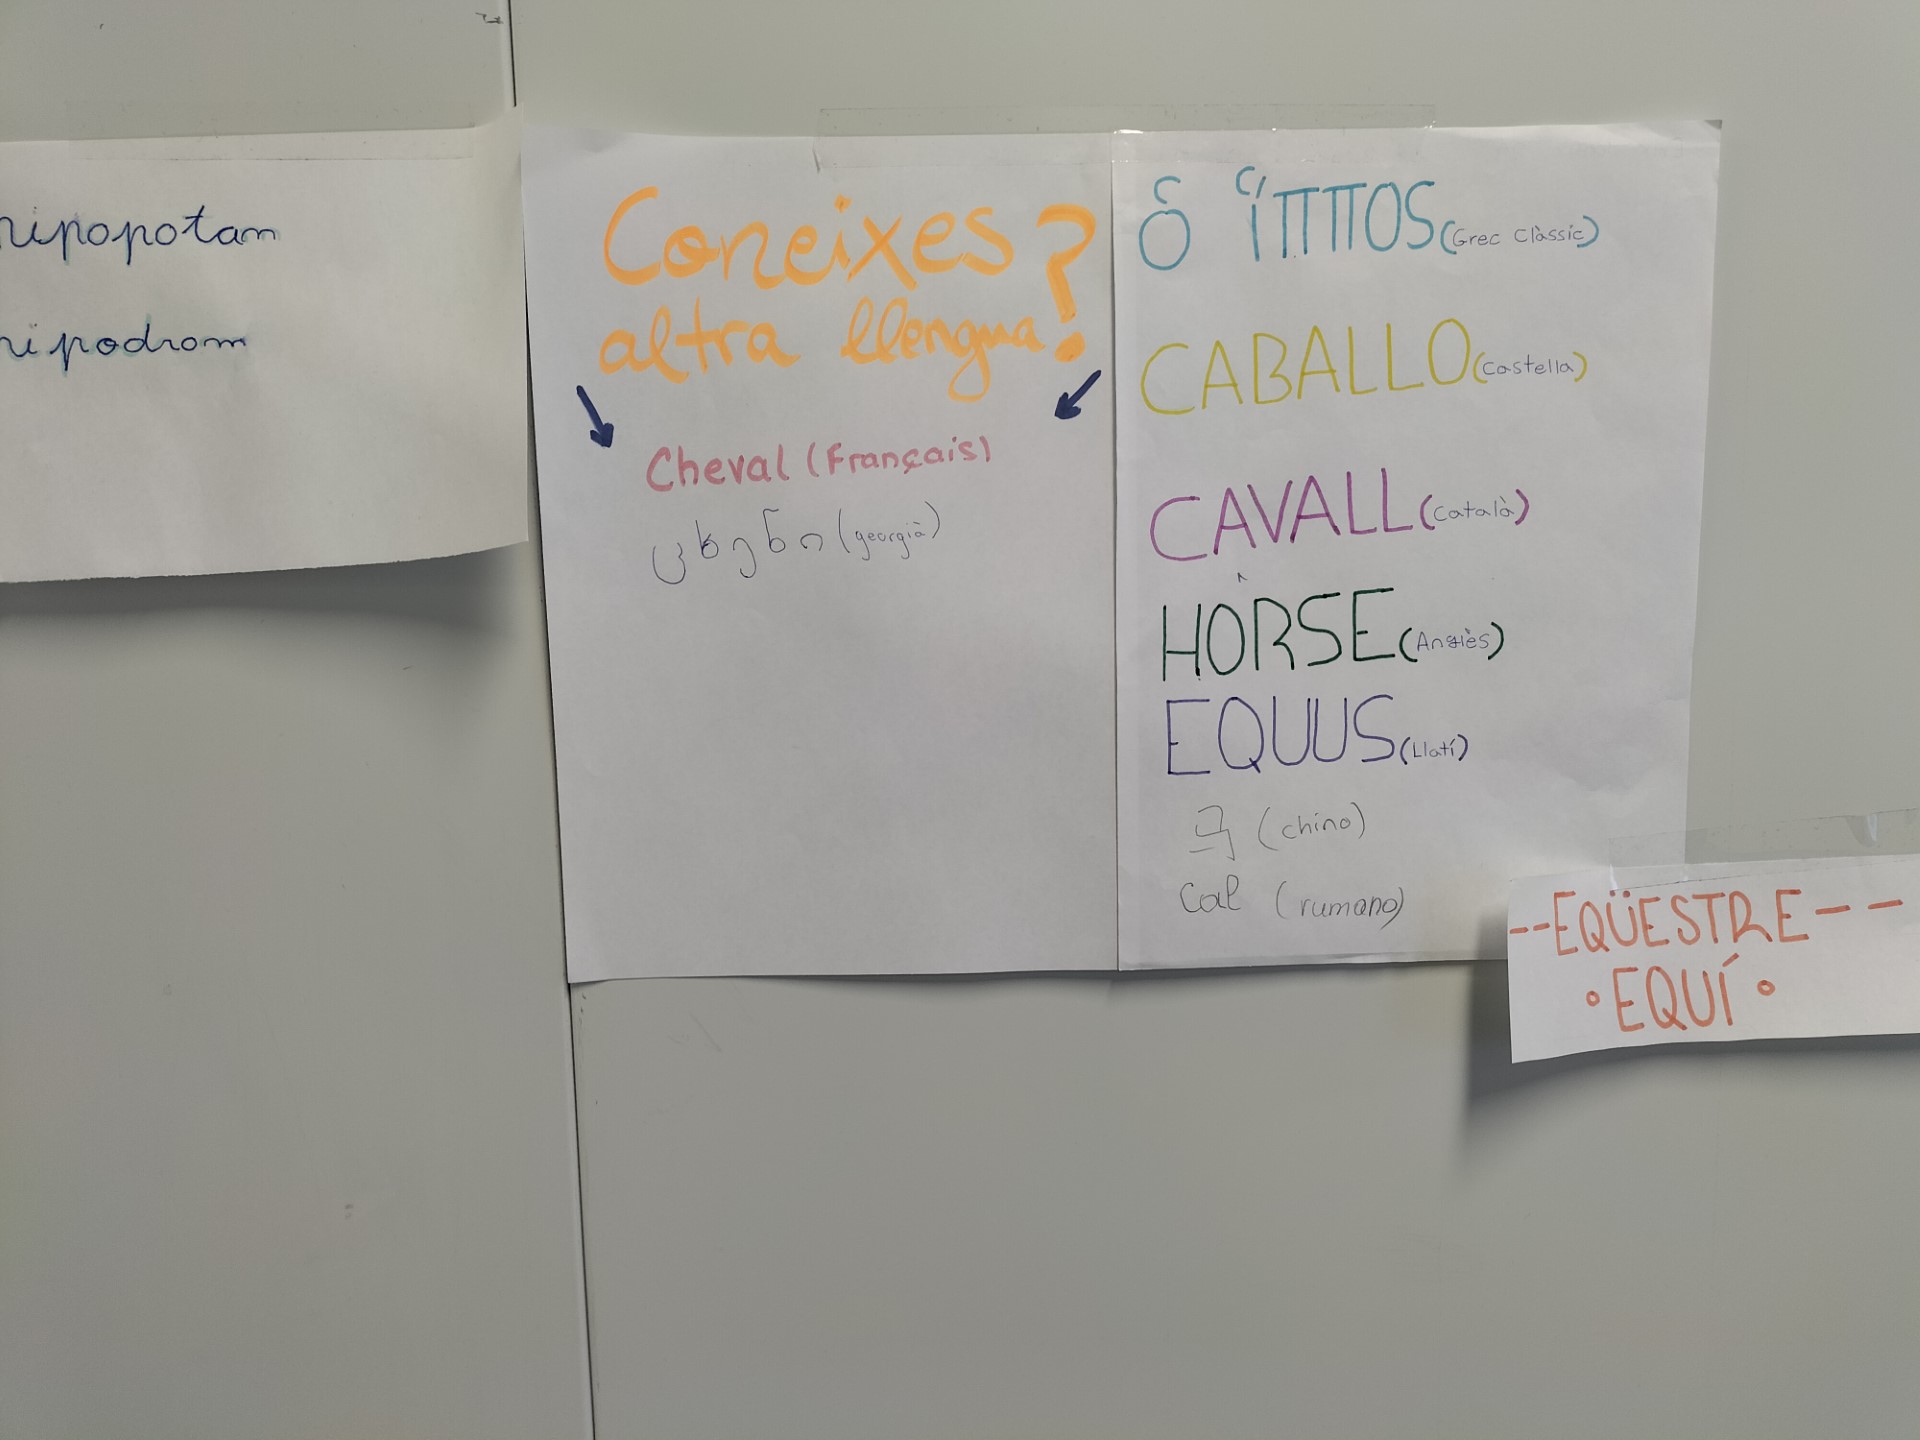 hipopotam
hipodrom
Coneixes
altra llengua?
Cheval (Français)
ცხენი (georgià)
ὁ ἵππος (Grec Clàssic)
CABALLO (Castellà)
CAVALL (Català)
HORSE (Anglès)
EQUUS (Llatí)
马 (chino)
cal (rumano)
--EQÜESTRE--
•EQUÍ•